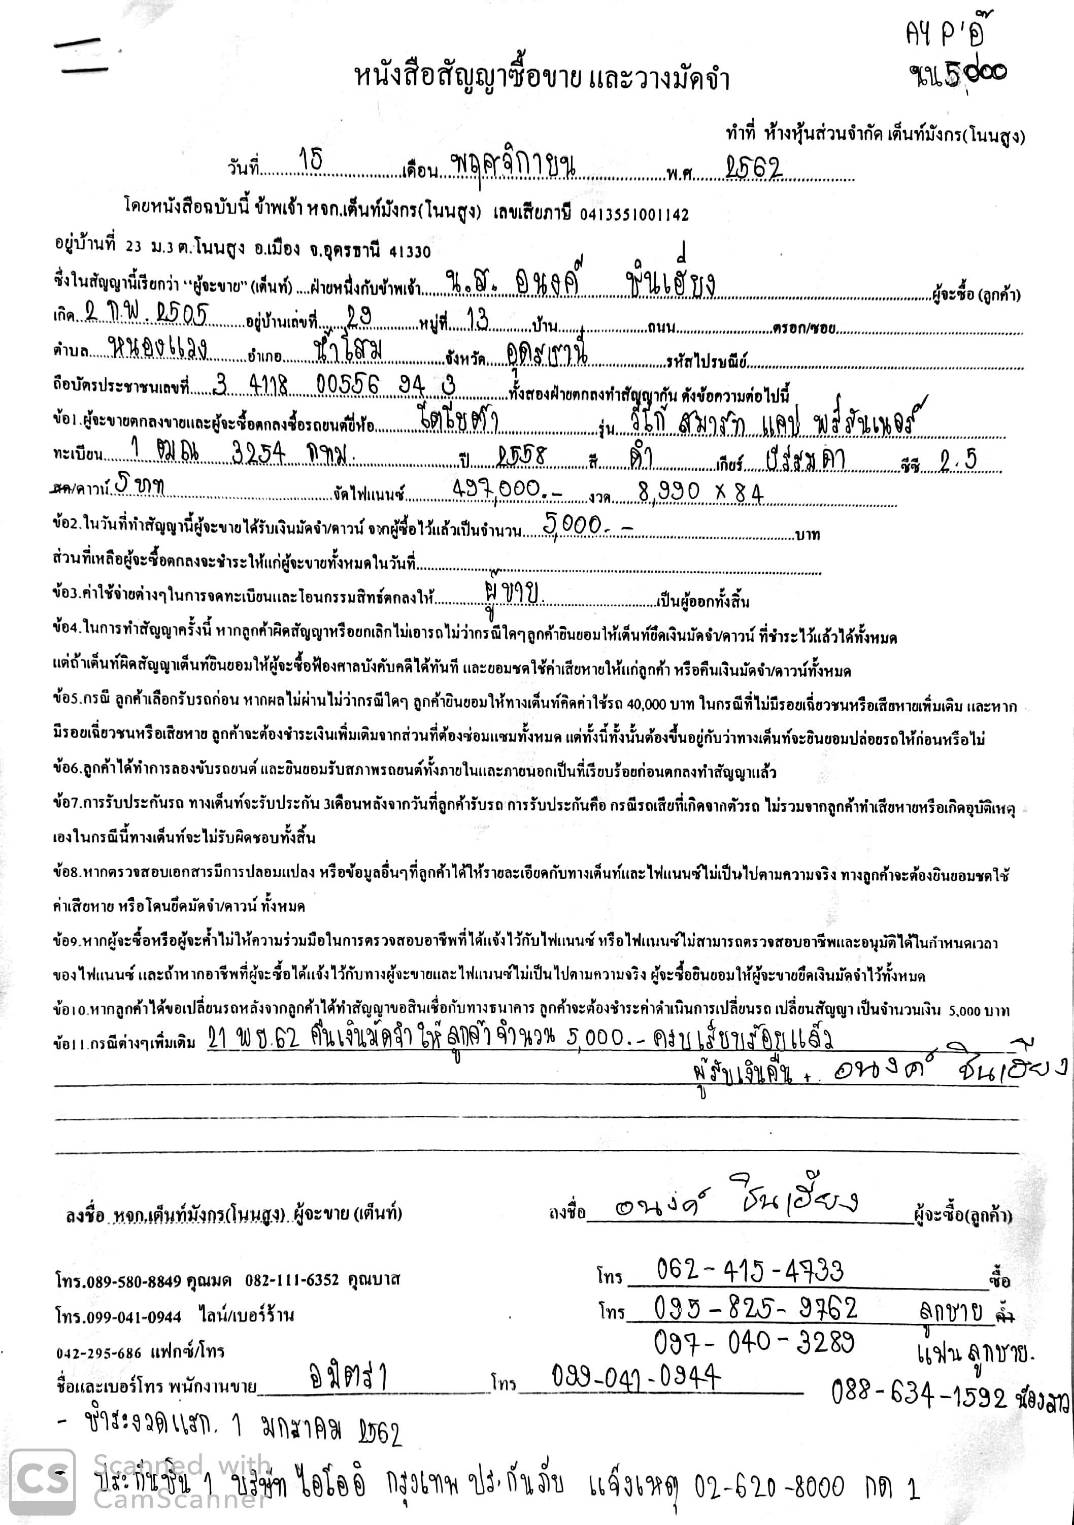 AY P'อี๊
หนังสือสัญญาซื้อขาย และวางมัดจำ
ทำที่ ห้างหุ้นส่วนจำกัด เต็นท์มังกร(โนนสูง)
วันที่ 15 เดือน พฤศจิกายน พ.ศ 2562
โดยหนังสือฉบับนี้ ข้าพเจ้า หจก.เต็นท์มังกร(โนนสูง) เลขเสียภาษี 0413551001142
อยู่บ้านที่ 23 ม.3 ต.โนนสูง อ.เมือง จ.อุดรธานี 41330
ซึ่งในสัญญานี้เรียกว่า "ผู้จะขาย" (เต็นท์) ....ฝ่ายหนึ่งกับข้าพเจ้า น.ส. อนงค์ ชินเฮียง ผู้จะซื้อ (ลูกค้า)
เกิด 2 ก.พ. 2505 อยู่บ้านเลขที่ 29 หมู่ที่ 13 บ้าน ถนน ตรอก/ซอย
ตำบล หนองแวง อำเภอ น้ำโสม จังหวัด อุดรธานี รหัสไปรษณีย์
ถือบัตรประชาชนเลขที่ 3 4118 00556 94 3 ทั้งสองฝ่ายตกลงทำสัญญากัน ดังข้อความต่อไปนี้
ข้อ1.ผู้จะขายตกลงขายและผู้จะซื้อตกลงซื้อรถยนต์ยี่ห้อ โตโยต้า รุ่น วีโก้ สมาร์ท แคป พรีรันเนอร์
ทะเบียน 1 ฒณ 3254 กทม. ปี 2558 สี ดำ เกียร์ ธรรมดา ซีซี 2.5
สด/ดาวน์ 5 บาท จัดไฟแนนซ์ 497,000.- งวด 8,990 x 84
ข้อ2.ในวันที่ทำสัญญานี้ผู้จะขายได้รับเงินมัดจำ/ดาวน์ จากผู้ซื้อไว้แล้วเป็นจำนวน 5,000.- บาท
ส่วนที่เหลือผู้จะซื้อตกลงจะชำระให้แก่ผู้จะขายทั้งหมดในวันที่
ข้อ3.ค่าใช้จ่ายต่างๆในการจดทะเบียนและโอนกรรมสิทธ์ตกลงให้ ผู้ขาย เป็นผู้ออกทั้งสิ้น
ข้อ4.ในการทำสัญญาครั้งนี้ หากลูกค้าผิดสัญญาหรือยกเลิกไม่เอารถไม่ว่ากรณีใดๆลูกค้ายินยอมให้เต็นท์ยึดเงินมัดจำ/ดาวน์ ที่ชำระไว้แล้วได้ทั้งหมด
แต่ถ้าเต็นท์ผิดสัญญาเต็นท์ยินยอมให้ผู้จะซื้อฟ้องศาลบังคับคดีได้ทันที และยอมชดใช้ค่าเสียหายให้แก่ลูกค้า หรือคืนเงินมัดจำ/ดาวน์ทั้งหมด
ข้อ5.กรณี ลูกค้าเลือกรับรถก่อน หากผลไม่ผ่านไม่ว่ากรณีใดๆ ลูกค้ายินยอมให้ทางเต็นท์คิดค่าใช้รถ 40,000 บาท ในกรณีที่ไม่มีรอยเฉี่ยวชนหรือเสียหายเพิ่มเติม และหาก
มีรอยเฉี่ยวชนหรือเสียหาย ลูกค้าจะต้องชำระเงินเพิ่มเติมจากส่วนที่ต้องซ่อมแซมทั้งหมด แต่ทั้งนี้ทั้งนั้นต้องขึ้นอยู่กับว่าทางเต็นท์จะยินยอมปล่อยรถให้ก่อนหรือไม่
ข้อ6.ลูกค้าได้ทำการลองขับรถยนต์ และยินยอมรับสภาพรถยนต์ทั้งภายในและภายนอกเป็นที่เรียบร้อยก่อนตกลงทำสัญญาแล้ว
ข้อ7.การรับประกันรถ ทางเต็นท์จะรับประกัน 3เดือนหลังจากวันที่ลูกค้ารับรถ การรับประกันคือ กรณีรถเสียที่เกิดจากตัวรถ ไม่รวมจากลูกค้าทำเสียหายหรือเกิดอุบัติเหตุ
เองในกรณีนี้ทางเต็นท์จะไม่รับผิดชอบทั้งสิ้น
ข้อ8.หากตรวจสอบเอกสารมีการปลอมแปลง หรือข้อมูลอื่นๆที่ลูกค้าได้ให้รายละเอียดกับทางเต็นท์และไฟแนนซ์ไม่เป็นไปตามความจริง ทางลูกค้าจะต้องยินยอมชดใช้
ค่าเสียหาย หรือโดนยึดมัดจำ/ดาวน์ ทั้งหมด
ข้อ9.หากผู้จะซื้อหรือผู้จะค้ำไม่ให้ความร่วมมือในการตรวจสอบอาชีพที่ได้แจ้งไว้กับไฟแนนซ์ หรือไฟแนนซ์ไม่สามารถตรวจสอบอาชีพและอนุมัติได้ในกำหนดเวลา
ของไฟแนนซ์ และถ้าหากอาชีพที่ผู้จะซื้อได้แจ้งไว้กับทางผู้จะขายและไฟแนนซ์ไม่เป็นไปตามความจริง ผู้จะซื้อยินยอมให้ผู้จะขายยึดเงินมัดจำไว้ทั้งหมด
ข้อ10.หากลูกค้าได้ขอเปลี่ยนรถหลังจากลูกค้าได้ทำสัญญาขอสินเชื่อกับทางธนาคาร ลูกค้าจะต้องชำระค่าดำเนินการเปลี่ยนรถ เปลี่ยนสัญญา เป็นจำนวนเงิน 5,000 บาท
ข้อ11.กรณีต่างๆเพิ่มเติม 21 พ.ย.62 คืนเงินมัดจำให้ลูกค้าจำนวน 5,000.- ครบเรียบร้อยแล้ว
ผู้รับเงินคืน + อนงค์ ชินเฮียง
ลงชื่อ หจก.เต็นท์มังกร(โนนสูง) ผู้จะขาย (เต็นท์) ลงชื่อ อนงค์ ชินเฮียง ผู้จะซื้อ(ลูกค้า)
โทร.089-580-8849 คุณมด 082-111-6352 คุณบาส โทร 062-415-4733 ซื้อ
โทร.099-041-0944 ไลน์/เบอร์ร้าน โทร 095-825-9762 ลูกชาย ค้ำ
042-295-686 แฟกซ์/โทร 097-040-3289 แฟนลูกชาย.
ชื่อและเบอร์โทร พนักงานขาย อมิตรา โทร 099-041-0944 088-634-1592 น้องสาว
- ชำระงวดแรก. 1 มกราคม 2562
- ประกันชั้น 1 บริษัท ไอโออิ กรุงเทพ ประกันภัย แจ้งเหตุ 02-620-8000 กด 1
CS Scanned with
CamScanner